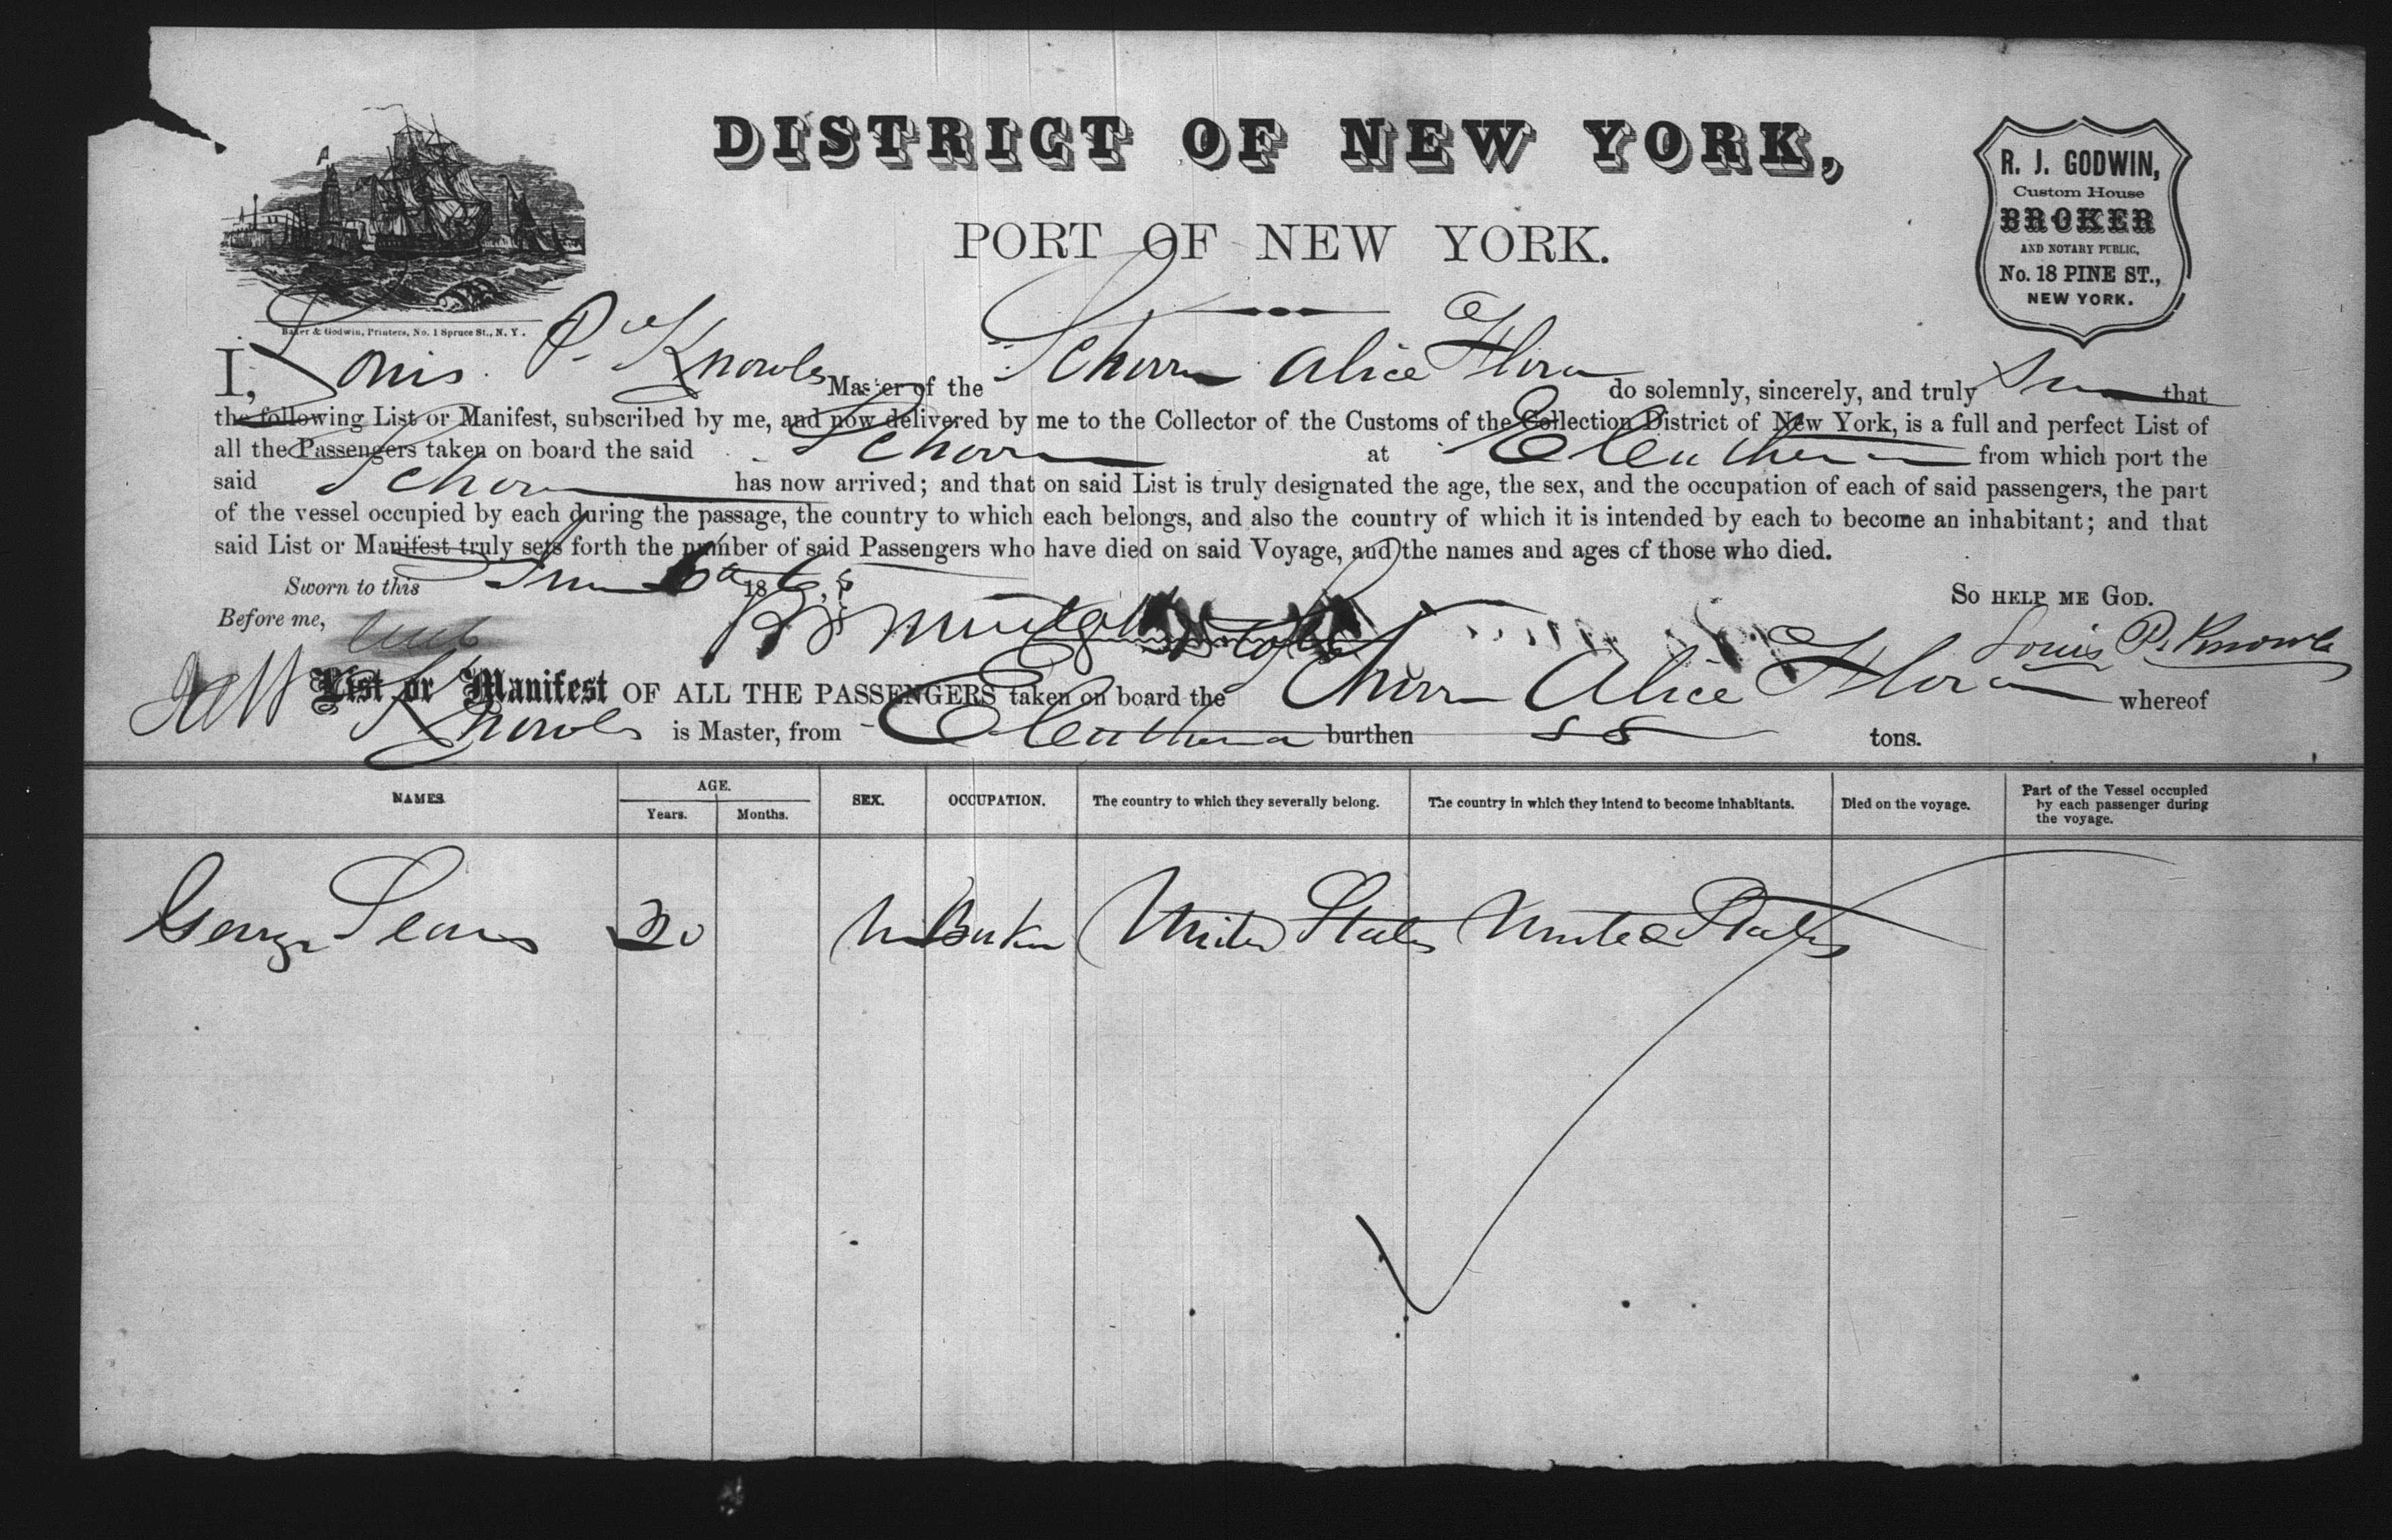 DISTRICT OF NEW YORK,
PORT OF NEW YORK.
R. J. GODWIN,
Custom House
BROKER
AND NOTARY PUBLIC,
No. 18 PINE ST.,
NEW YORK.
Baker & Godwin, Printers, No. 1 Spruce St., N. Y.
I, Louis P. Knowles Master of the Schorr Alice Flora do solemnly, sincerely, and truly that
the following List or Manifest, subscribed by me, and now delivered by me to the Collector of the Customs of the Collection District of New York, is a full and perfect List of
all the Passengers taken on board the said Schorr at Eleuthera from which port the
said Schor has now arrived; and that on said List is truly designated the age, the sex, and the occupation of each of said passengers, the part
of the vessel occupied by each during the passage, the country to which each belongs, and also the country of which it is intended by each to become an inhabitant; and that
said List or Manifest truly sets forth the number of said Passengers who have died on said Voyage, and the names and ages of those who died.
Sworn to this June 6 186
SO HELP ME GOD.
Before me,
Louis P. Knowles
List or Manifest OF ALL THE PASSENGERS taken on board the Schorr Alice Flora whereof
Knowles is Master, from Eleuthera burthen tons.
NAMES
AGE.
Years. Months.
SEX.
OCCUPATION.
The country to which they severally belong.
The country in which they intend to become inhabitants.
Died on the voyage.
Part of the Vessel occupied
by each passenger during
the voyage.
George Sears M United States United States